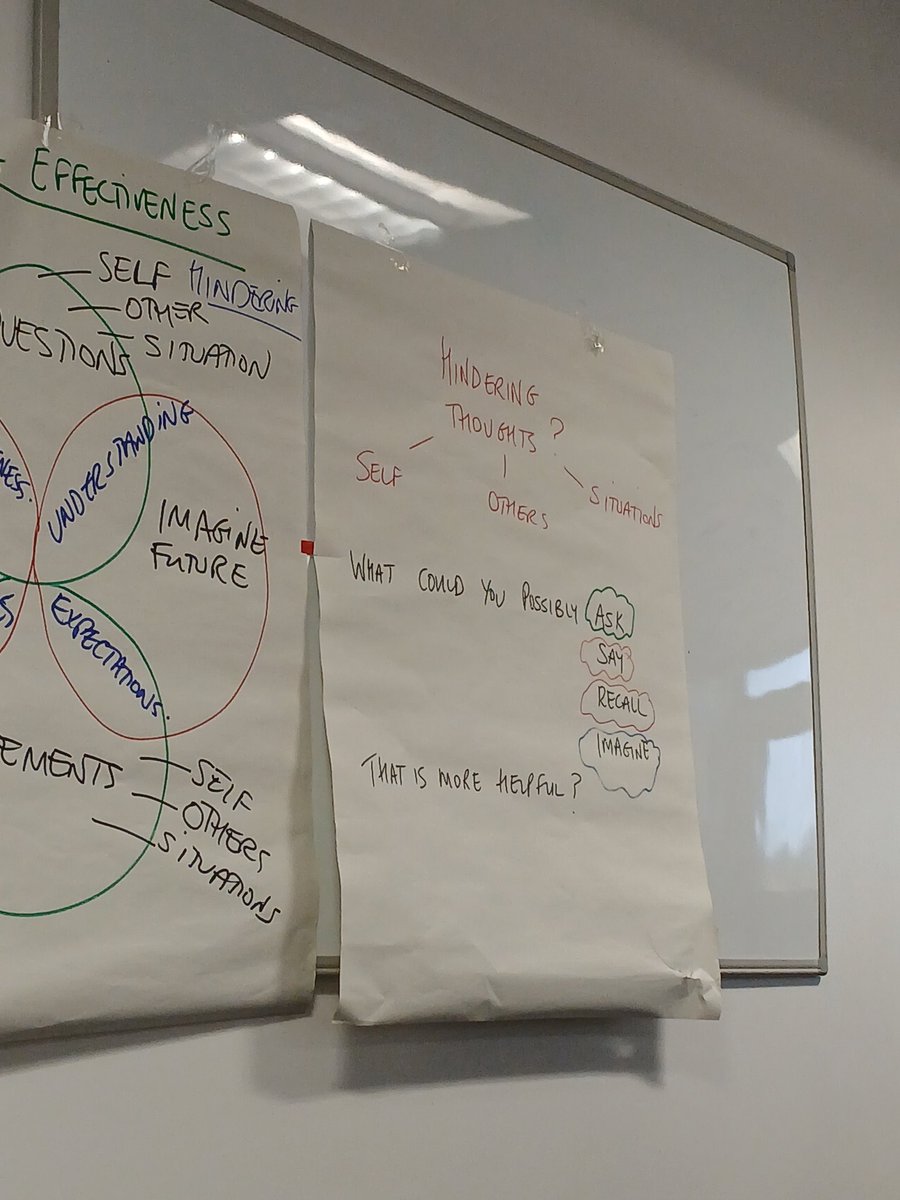 EFFECTIVENESS
SELF HINDERING
OTHER
SITUATION
UNDERSTANDING
IMAGINE
FUTURE
EXPECTATIONS.
SELF
OTHERS
SITUATIONS
HINDERING
THOUGHTS ?
SELF
OTHERS
SITUATIONS
WHAT COULD YOU POSSIBLY ASK
SAY
RECALL
IMAGINE
THAT IS MORE HELPFUL ?